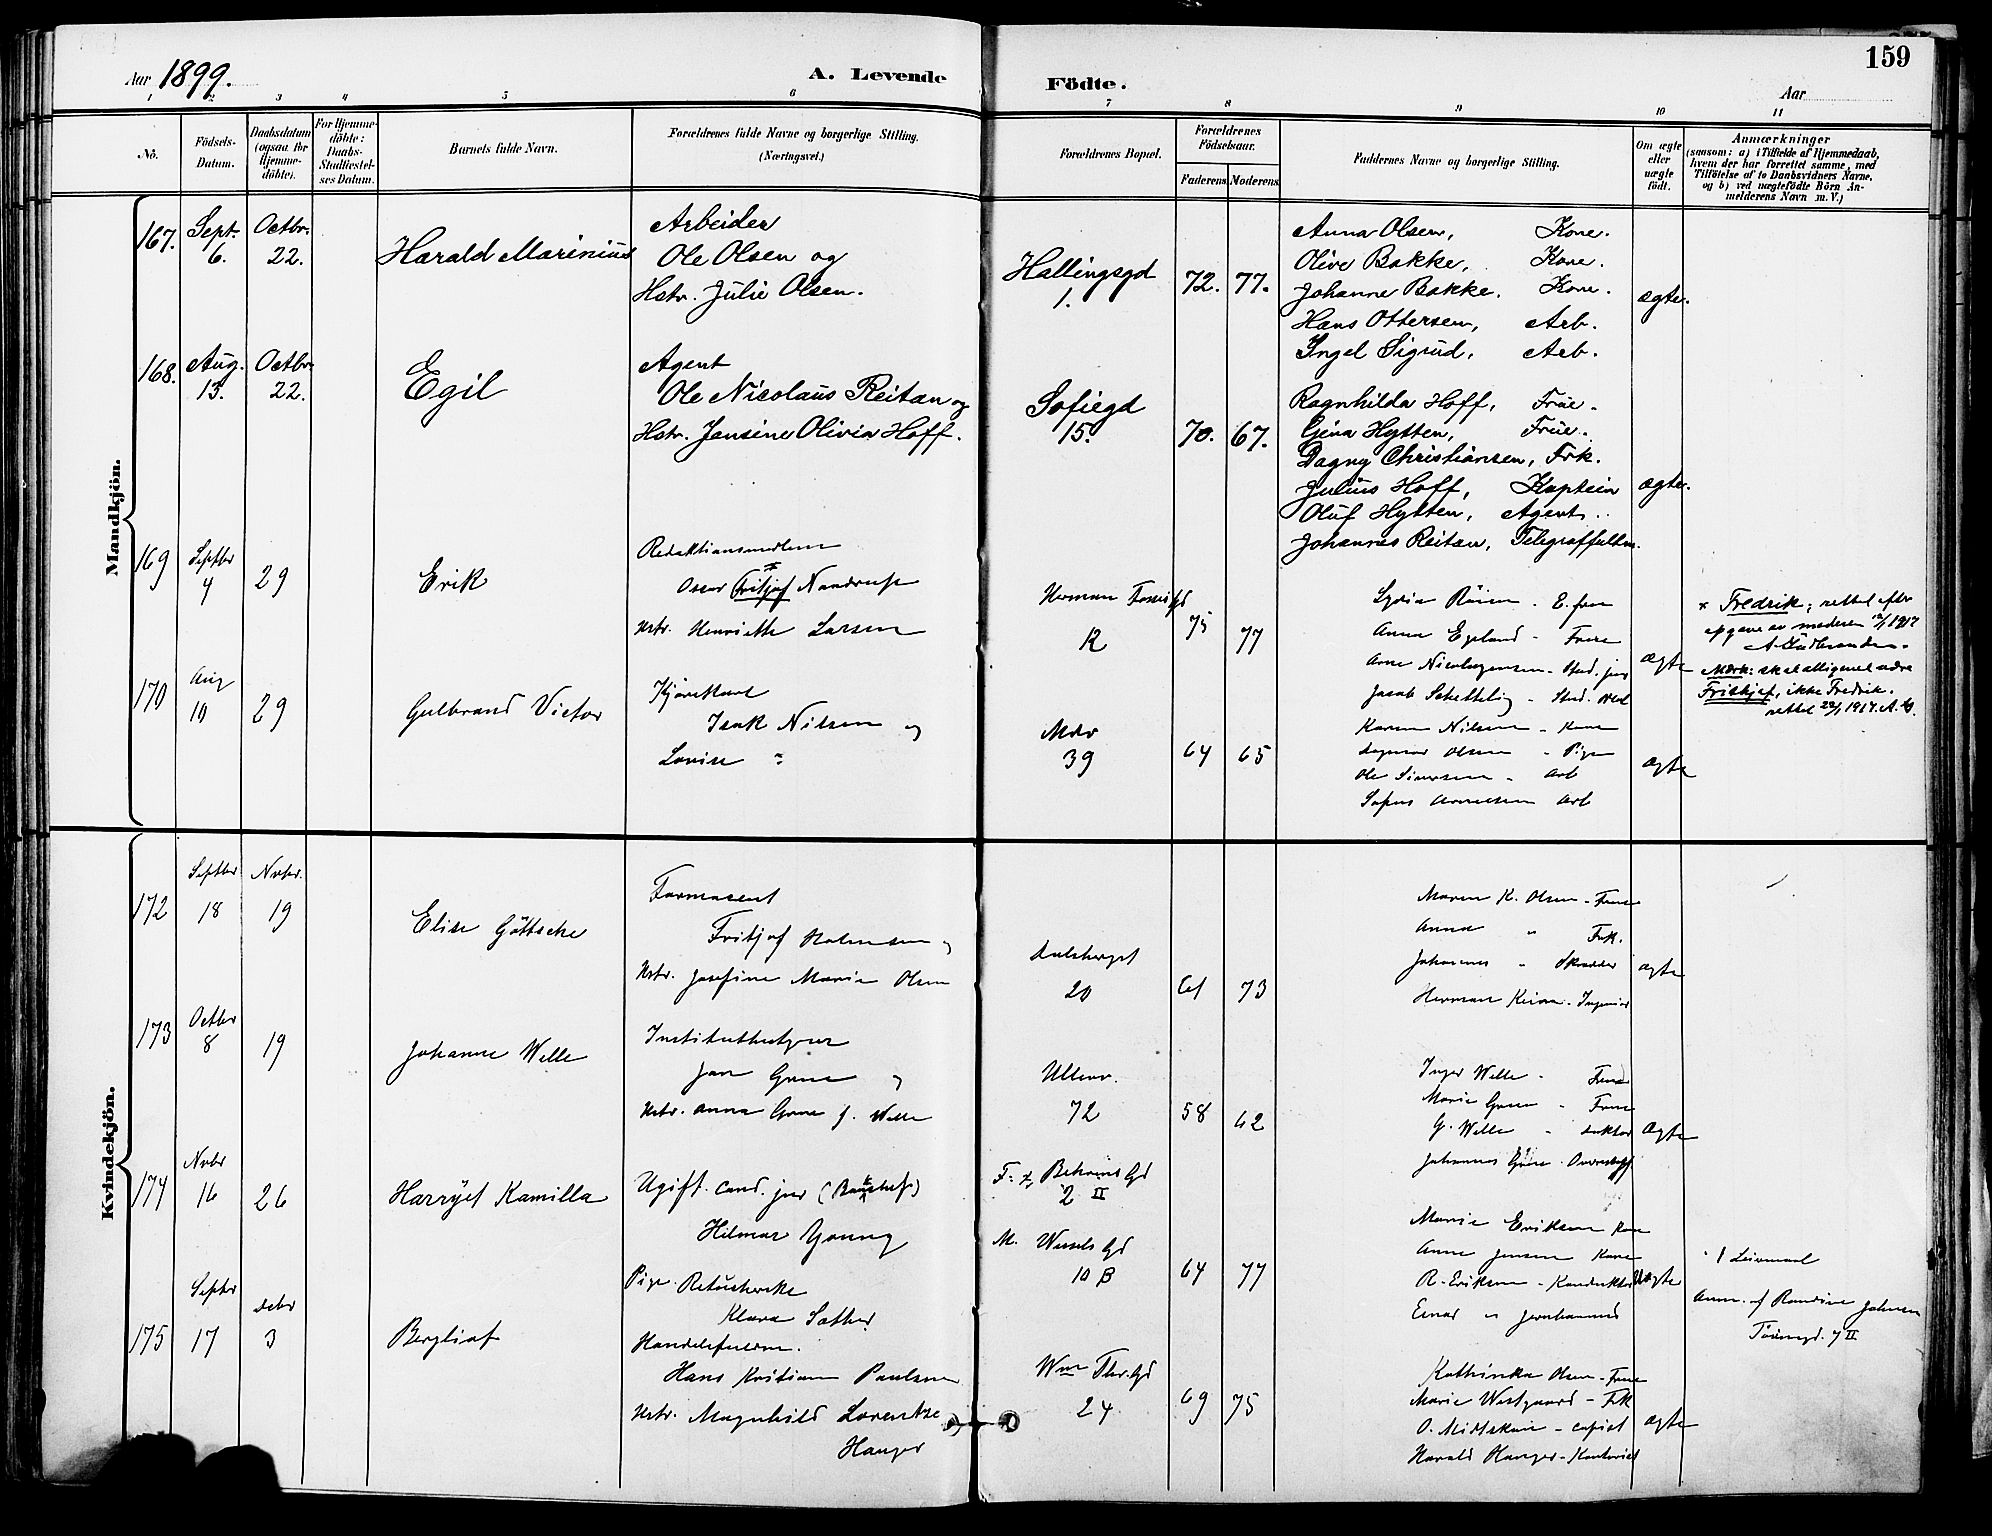 Aar 1899.
A. Levende Födte.
159
Aar
1 2 3 4 5 6 7 8 9 10 11
No.
Födsels-Datum.
Daabsdatum (ogsaa for Hjemme-döbte).
For Hjemme-döbte: Daabs-Stadfæstel-ses Datum.
Barnets fulde Navn.
Forældrenes fulde Navne og borgerlige Stilling. (Næringsvei.)
Forældrenes Bopæl.
Forældrenes Födselsaar.
Faderens. Moderens.
Faddernes Navne og borgerlige Stilling.
Om ægte eller uægte født.
Anmærkninger
(saasom: a) i Tilfælde af Hjemmedaab, hvem der har forrettet samme, med Tilföielse af to Daabsvidners Navne, og b) ved uægtefödte Börn An-melderens Navn m. V.)
Mandkjön.
167. Sept. 6. Octbr. 22.
Harald Marinius
Arbeider
Ole Olsen og
Hstr. Julie Olsen.
Hallingsgd 1.
72. 77.
Anna Olsen, Kone.
Olive Bakke, Kone.
Johanne Bakke. Kone.
Hans Ottersen, Arb.
Ingel Sigrud, Arb.
ægte.
168. Aug. 13. Octbr. 22.
Egil
Agent
Ole Nicolaus Reitan og
Hstr. Jansine Olivia Hoff.
Sofiegd 15.
70. 67.
Ragnhilda Hoff, Frue.
Gina Hytten, Frue.
Dagny Christiansen, Frk.
Julius Hoff, Kaptein
Oluf Hytten, Agent
Johannes Reitan, Telegraffultm.
ægte.
169 Septbr 4 29
Erik
Redaktionsmedlem
Oscar Fritjof Nandrup
Hstr. Henriette Larsen
Herman Fossgd 12
75 77
Lydia - E. frue
Anna Egeland - Frue
Arne - Stud. jur
Jacob Schetelig - Stud. Med
ægte
x Fredrik; rettet efter
opgave av moderen 12/1 1917
Mærk: skal alligevel være
Frithjof, ikke Fredrik.
rettet 22/1 1917. A. G.
170 Aug 10 29
Gulbrand Victor
Kjørekarl
Isak Nilsen og
Lovise "
Mdv 39
64 65
Karen Nilsen - Kone
Dagmar Olsen - Pige
Ole Simensen - Arb
Sofus Arnesen Arb
ægte
Kvindekjön.
172 Septbr 18 Novbr. 19
Elise Göttsche
Farmaceut
Fritjof Halmsen og
Hstr. Josefine Marie Olsen
Dalsberget 20
61 73
Maren K. Olsen - Frue
Anna " Frk.
Johannes " Skrædder
Herman - Ingeniør
ægte
173 Octbr 8 19
Johanne Welle
Institutbestyrer
Jan Grue og
Hstr. Anna Grue f. Welle
Ullevv. 72
58 62
Inger Welle - Frue
Marie Grue - Frue
G. Welle - Doktor
Johannes Grue -
ægte
174 Novbr 16 26
Harryet Kamilla
Ugift. Cand. jur
Hilmar Young
Pige. Retucherske
Klara Sæther
F: x Behrens Gd 2 II
M. Wessels Gd 10 B
64 77
Marie Eriksen Kone
Anne Jensen Kone
R. Eriksen - Konduktør
Einar " Jernbanemd
Uægte
1 Leiermaal
Anm. af Randine Johnsen
7 II
175 Septbr 17 Decbr 3
Bergliot
Handelsfuldm.
Hans Kristian Paulsen
Hstr. Magnhild Lorentze
Hauger
Wm Thr. Gd 24
69 75
Kathinka Olsen - Frue
Marie Westgaard - Frk
O. Midtskau - Copist
Harald Hauger - Kontorist
ægte